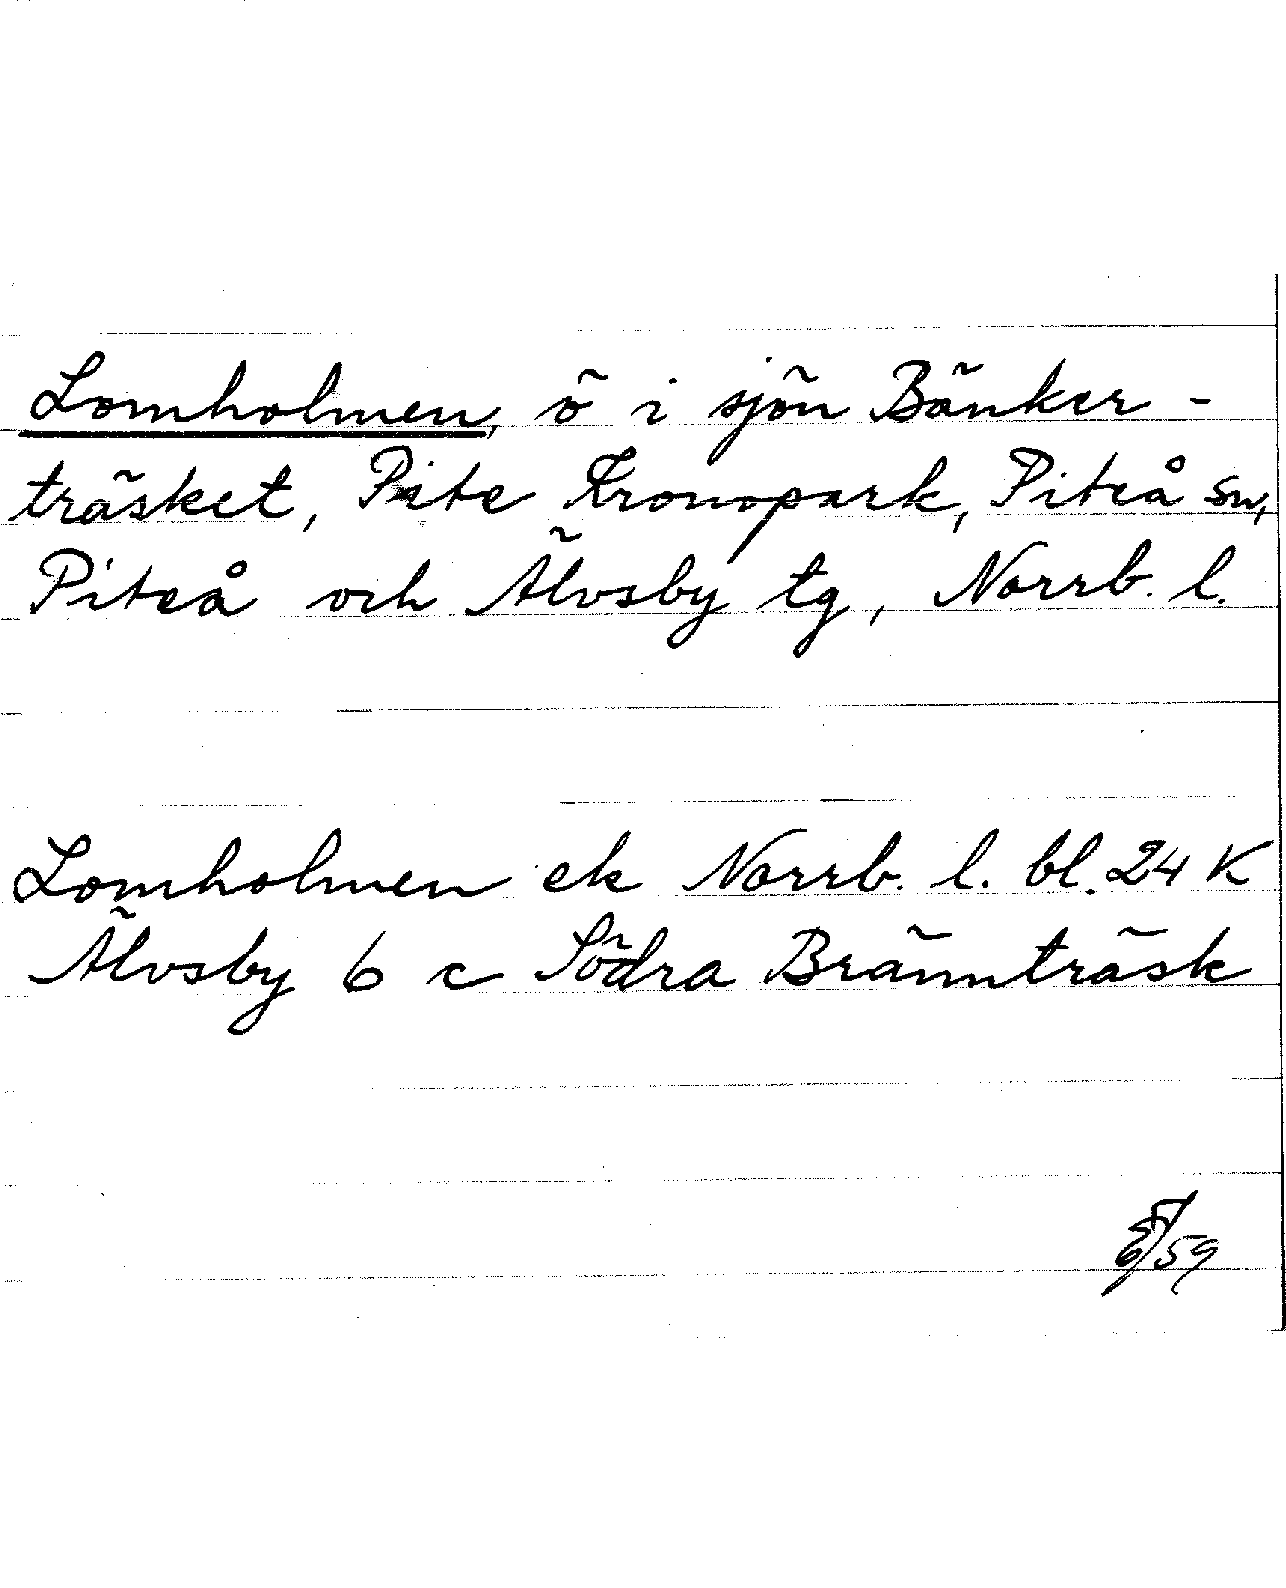 Lomholmen, ö i sjön Bänker-
träsket, Pite Kronopark, Piteå sn,
Piteå och Älvsby tg, Norrb. l.
Lomholmen ek Norrb. l. bl. 24 K
Älvsby 6 c Södra Brännträsk
/59